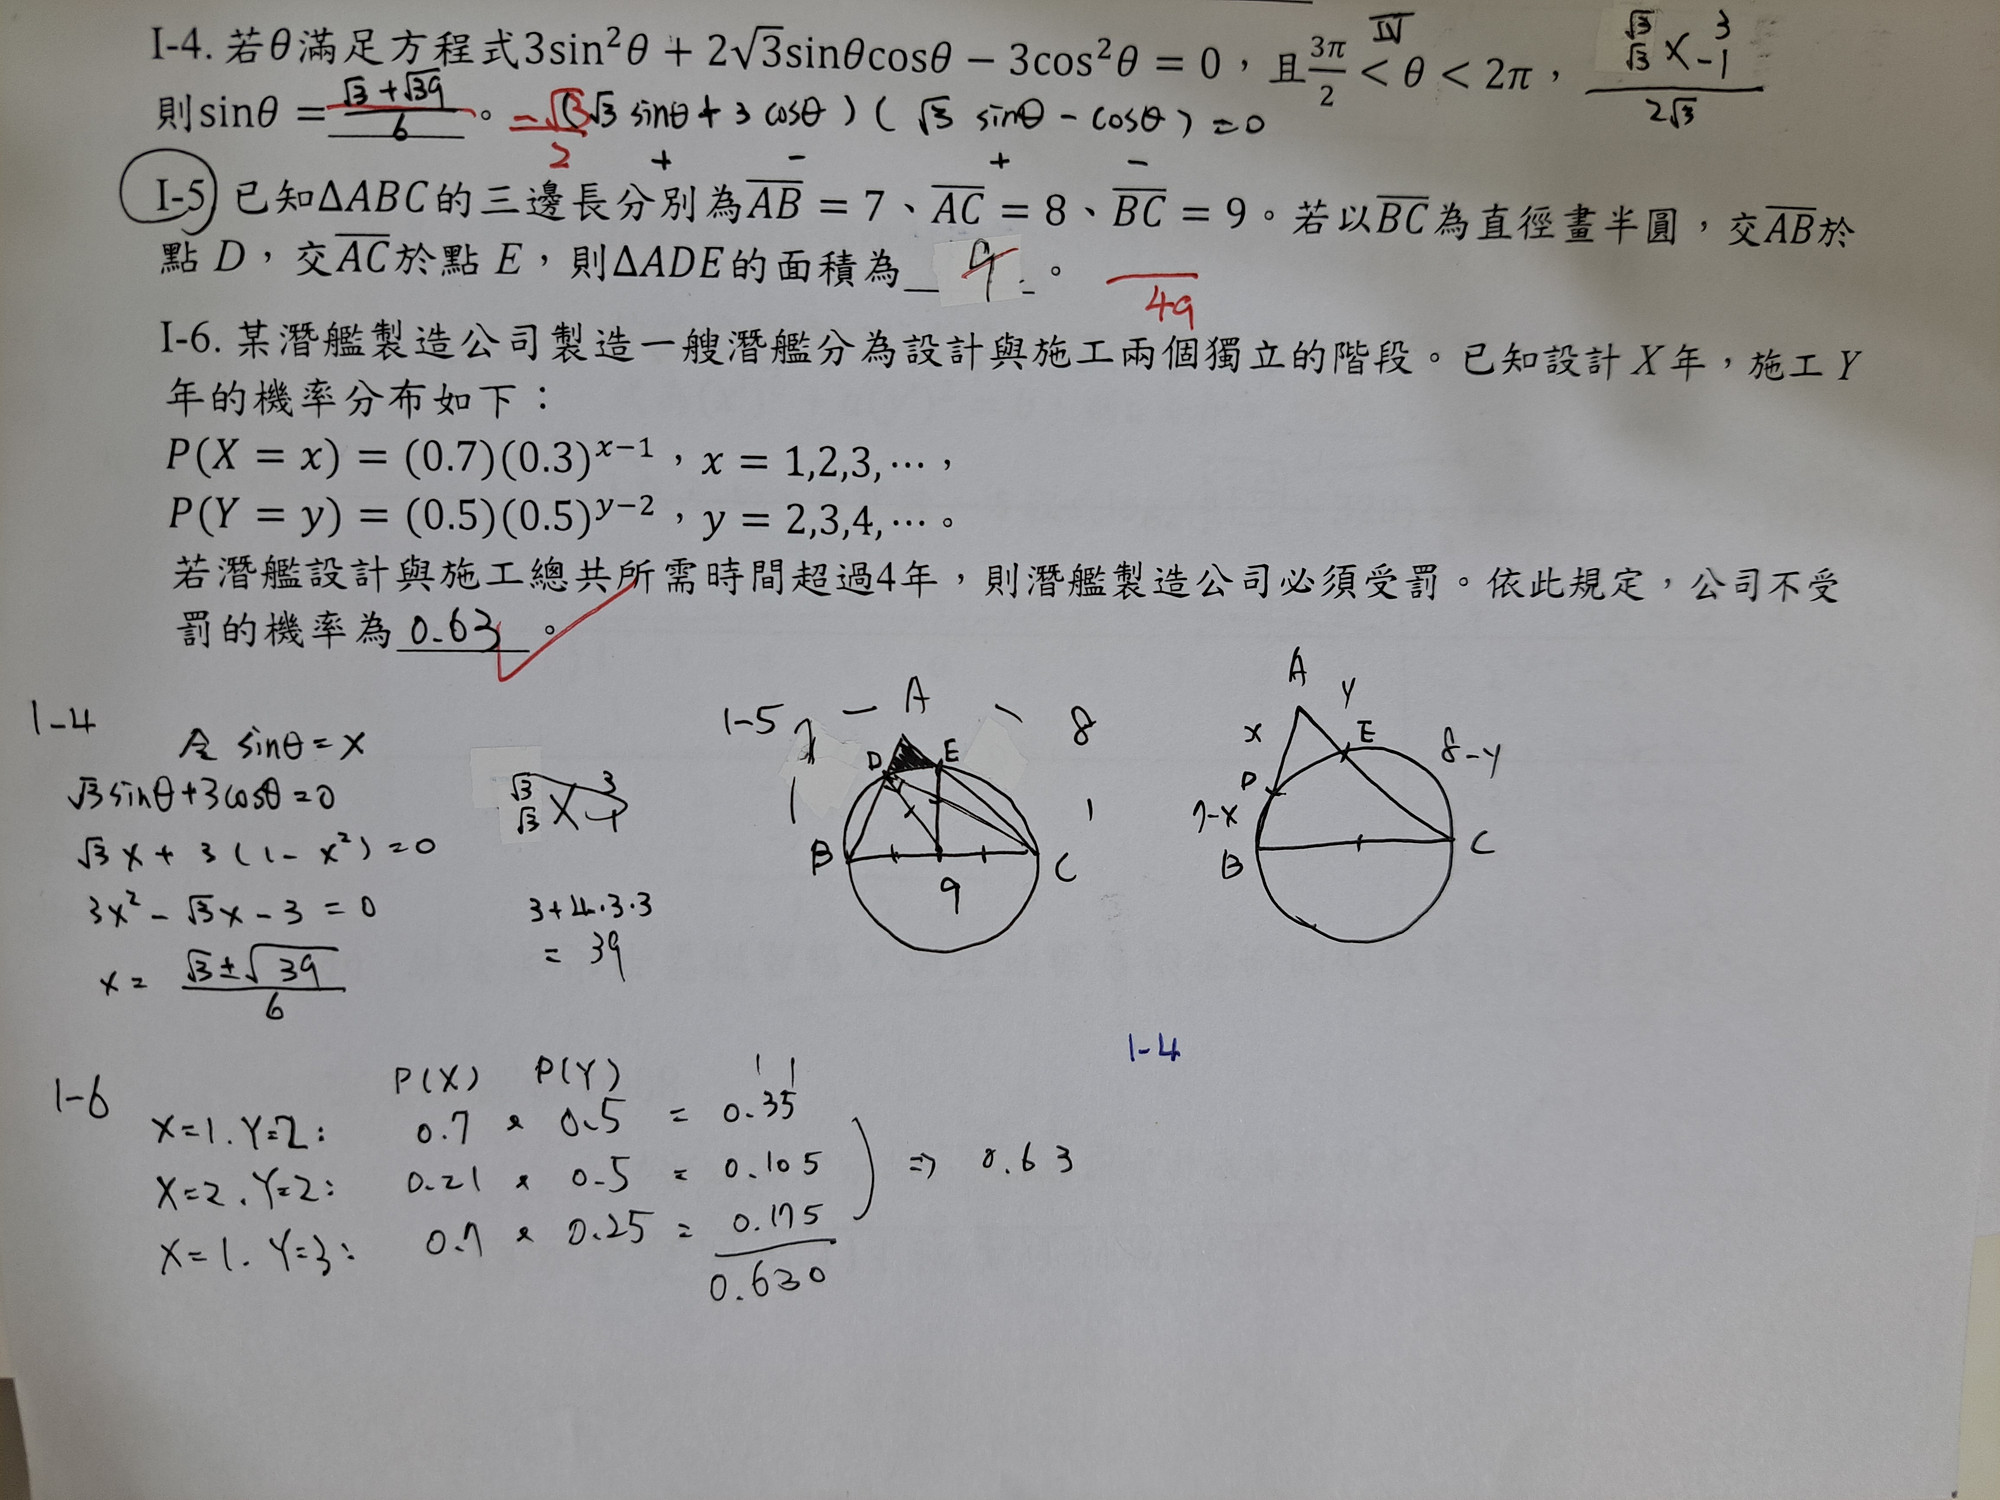 I-4. 若θ滿足方程式3sin²θ + 2√3sinθcosθ − 3cos²θ = 0，且3π/2 < θ < 2π，
IV
√3 3
√3 X -1
2√3
則sinθ = (√3 + √39)/6 。 -√3/2 (√3 sinθ + 3 cosθ) (√3 sinθ - cosθ) = 0
+ - + -
I-5 已知ΔABC的三邊長分別為AB = 7、AC = 8、BC = 9。若以BC為直徑畫半圓，交AB於
點 D，交AC於點 E，則ΔADE的面積為 9 。
49
I-6. 某潛艦製造公司製造一艘潛艦分為設計與施工兩個獨立的階段。已知設計 X 年，施工 Y
年的機率分布如下：
P(X = x) = (0.7)(0.3)ˣ⁻¹，x = 1,2,3,⋯，
P(Y = y) = (0.5)(0.5)ʸ⁻²，y = 2,3,4,⋯。
若潛艦設計與施工總共所需時間超過4年，則潛艦製造公司必須受罰。依此規定，公司不受
罰的機率為 0.63 。
1-4
令 sinθ = x
√3 sinθ + 3cosθ = 0
√3 x + 3 (1 - x²) = 0
3x² - √3x - 3 = 0
x = (√3 ± √39)/6
√3 3
√3 X -1
3+4·3·3
= 39
1-5
A
7
8
D E
B C
9
A
x y
D E
7-x 8-y
B C
1-4
1-6
P(X) P(Y)
X=1. Y=2: 0.7 × 0.5 = 0.35
X=2. Y=2: 0.21 × 0.5 = 0.105 ⇒ 0.63
X=1. Y=3: 0.7 × 0.25 = 0.175
0.630